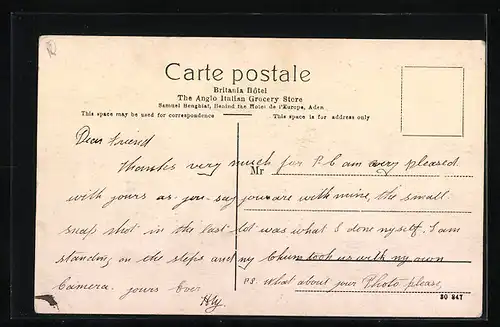 Carte postale
Britania Hôtel
The Anglo Italian Grocery Store
Samuel Benghiat, Behind the Hotel de l'Europe, Aden
This space may be used for correspondence
This space is for address only
Dear Friend
Thanks very much for P.C am very pleased
Mr
with yours as you say you are with mine, the small
snap shot in the last lot was what I done myself. I am
standing on the steps and my Chum took us with my own
Camera. yours Ever
P.S. What about your Photo please,
Hy.
30 847